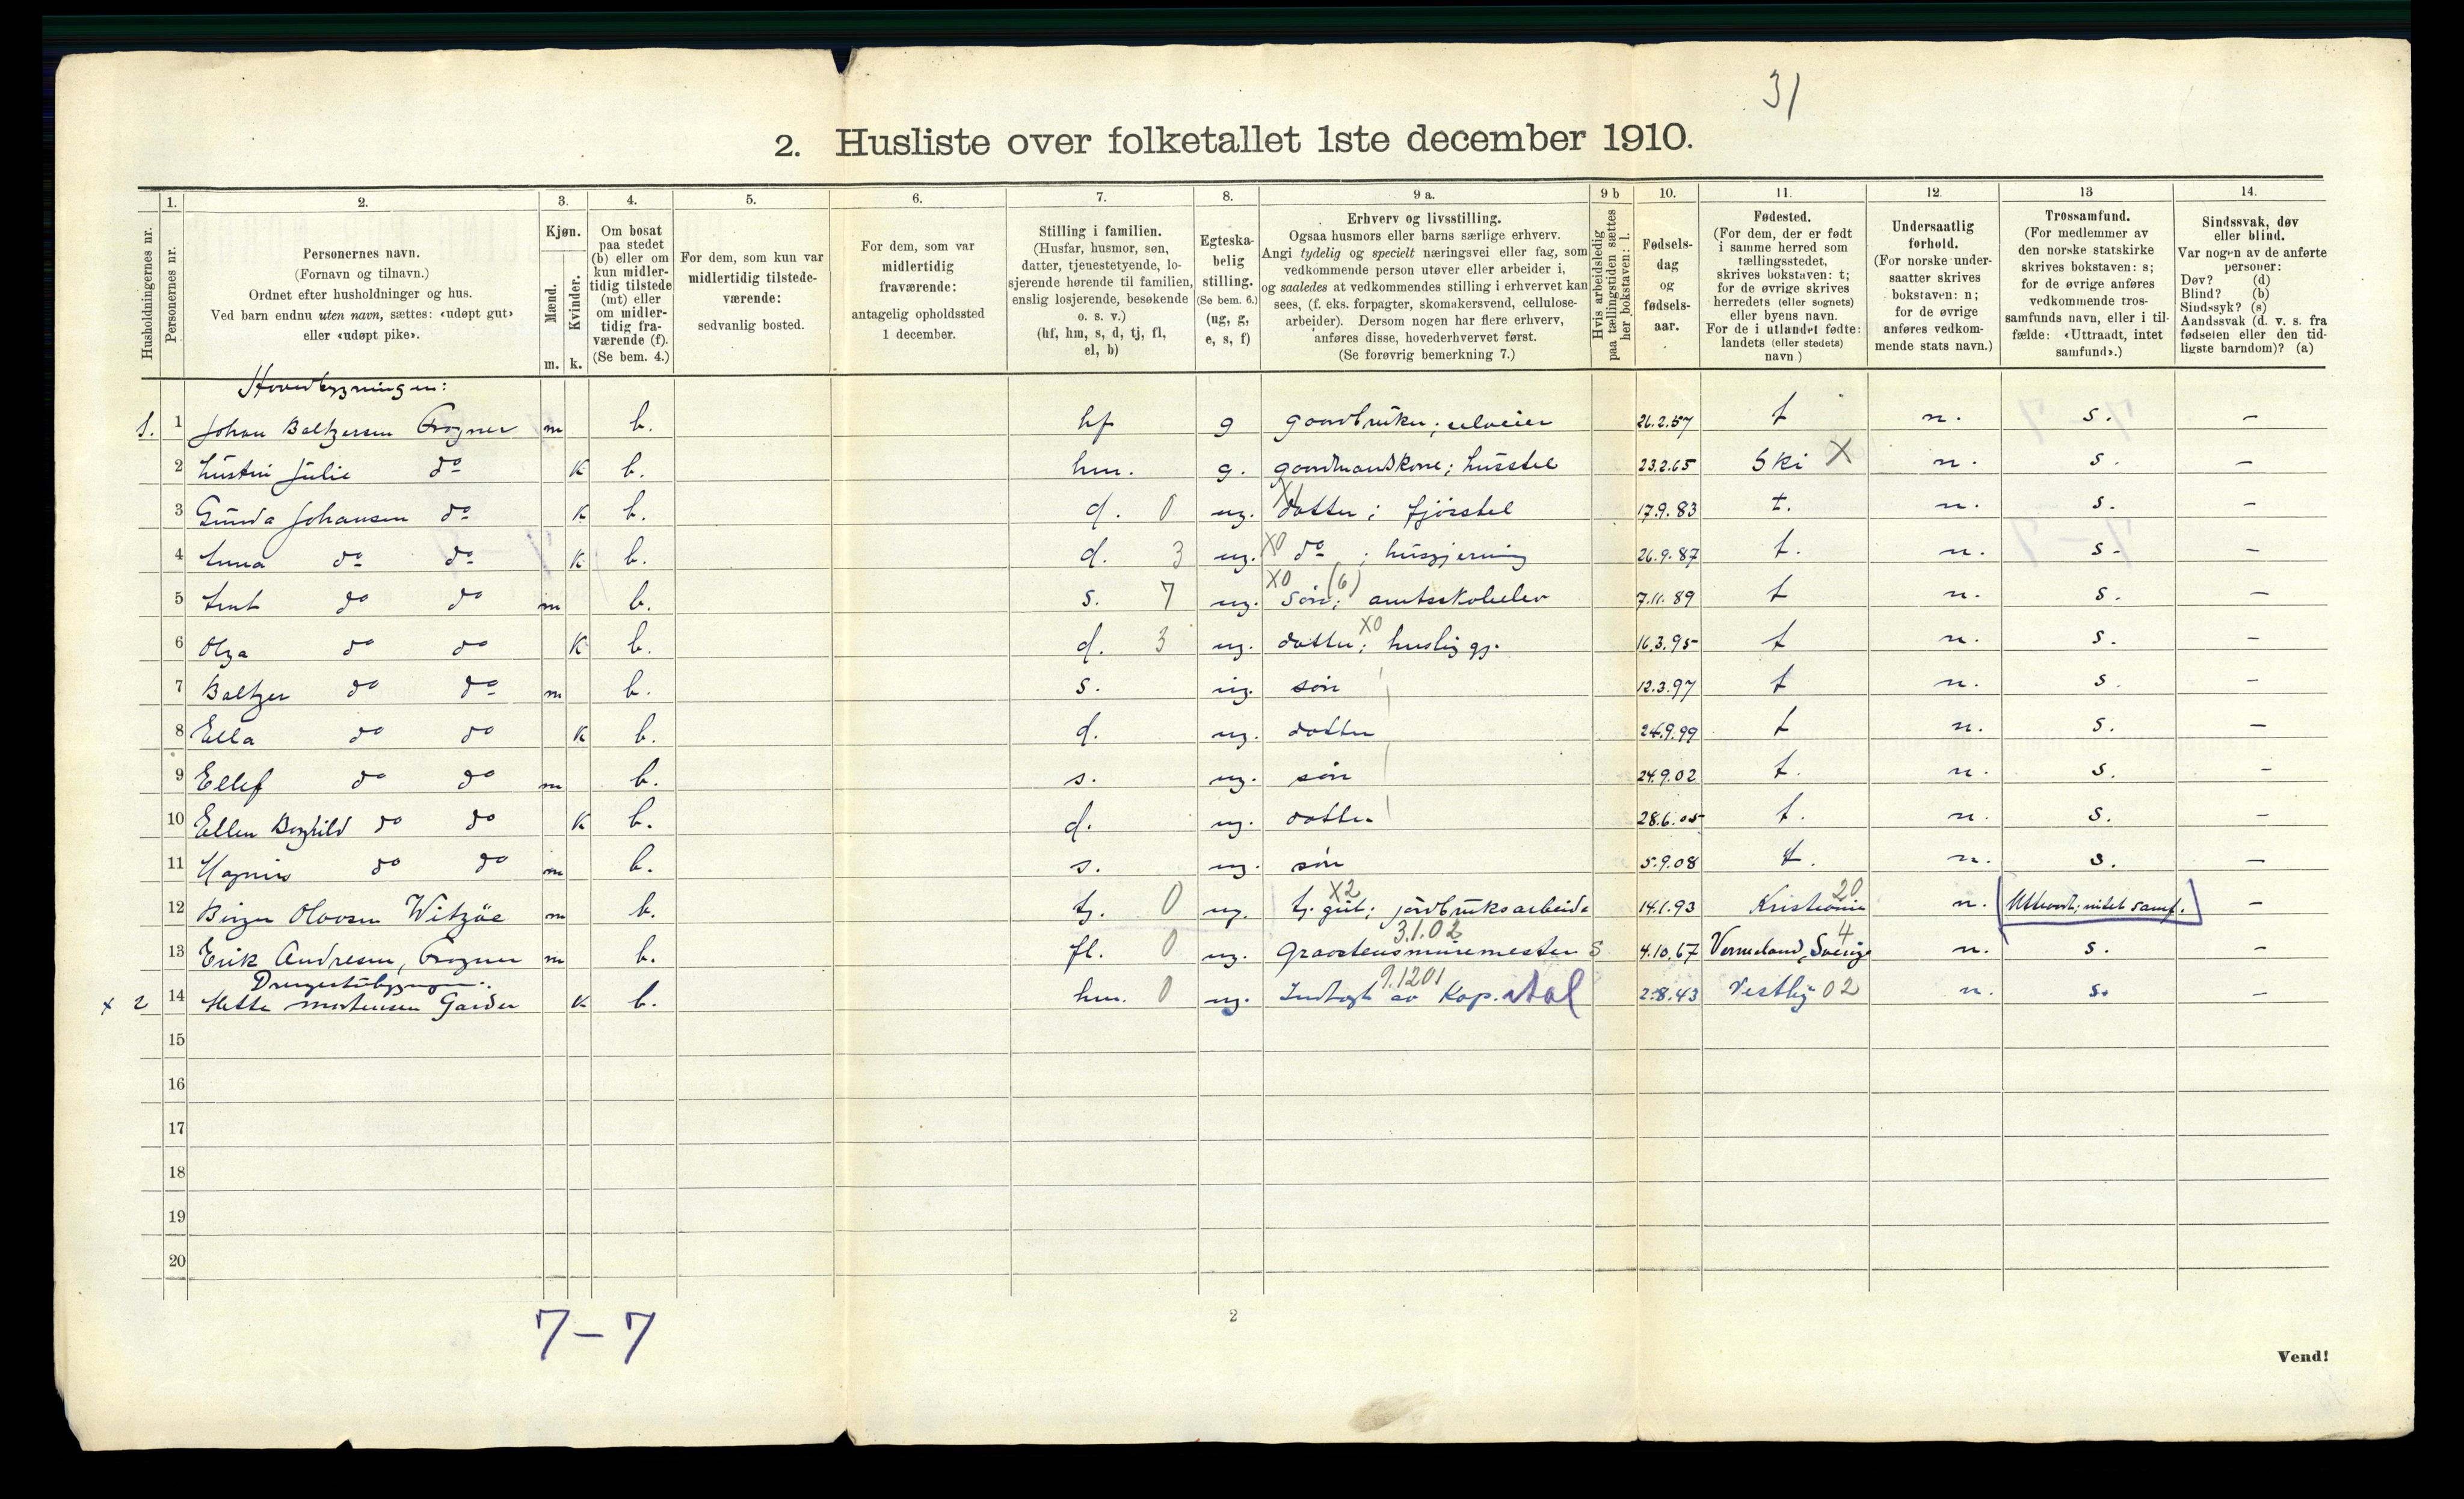 31
2. Husliste over folketallet 1ste december 1910.
Husholdningernes nr.
1.
Personernes nr.
2.
Personernes navn.
(Fornavn og tilnavn.)
Ordnet efter husholdninger og hus.
Ved barn endnu uten navn, sættes: «udøpt gut»
eller «udøpt pike».
3.
Kjøn.
Mænd.
Kvinder.
m. k.
4.
Om bosat
paa stedet
(b) eller om
kun midler-
tidig tilstede
(mt) eller
om midler-
tidig fra-
værende (f).
(Se bem. 4.)
5.
For dem, som kun var
midlertidig tilstede-
værende:
sedvanlig bosted.
6.
For dem, som var
midlertidig
fraværende:
antagelig opholdssted
1 december.
7.
Stilling i familien.
(Husfar, husmor, søn,
datter, tjenestetyende, lo-
sjerende hørende til familien,
enslig losjerende, besøkende
o. s. v.)
(hf, hm, s, d, tj, fl,
el, b)
8.
Egteska-
belig
stilling.
(Se bem. 6.)
(ug, g,
e, s, f)
9 a.
Erhverv og livsstilling.
Ogsaa husmors eller barns særlige erhverv.
Angi tydelig og specielt næringsvei eller fag, som
vedkommende person utøver eller arbeider i,
og saaledes at vedkommendes stilling i erhvervet kan
sees, (f. eks. forpagter, skomakersvend, cellulose-
arbeider). Dersom nogen har flere erhverv,
anføres disse, hovederhvervet først.
(Se forøvrig bemerkning 7.)
9 b
Hvis arbeidsledig
paa tællingstiden sættes
her bokstaven: l.
10.
Fødsels-
dag
og
fødsels-
aar.
11.
Fødested.
(For dem, der er født
i samme herred som
tællingsstedet,
skrives bokstaven: t;
for de øvrige skrives
herredets (eller sognets)
eller byens navn.
For de i utlandet fødte:
landets (eller stedets)
navn.)
12.
Undersaatlig
forhold.
(For norske under-
saatter skrives
bokstaven: n;
for de øvrige
anføres vedkom-
mende stats navn.)
13
Trossamfund.
(For medlemmer av
den norske statskirke
skrives bokstaven: s;
for de øvrige anføres
vedkommende tros-
samfunds navn, eller i til-
fælde: «Uttraadt, intet
samfund».)
14.
Sindssvak, døv
eller blind.
Var nogen av de anførte
personer:
Døv? (d)
Blind? (b)
Sindssyk? (s)
Aandssvak (d. v. s. fra
fødselen eller den tid-
ligste barndom)? (a)
Hovedbygningen:
1. 1 Johan Baltzersen Frogner m b. hf g gaardbruker; selveier 26.2.57 t n. s. –
2 Julie do k b. hm. g. gaardmandskone; husstel 23.2.65 Ski X n. s. –
3 Gunda Johansen do k b. d. 0 ug. X1 datter; fjøsstel 17.9.83 t. n. s. –
4 Anna do do k b. d. 3 ug. X0 do ; husgjerning 26.9.87 t. n. s. –
5 do do m b. s. 7 ug. X0 søn; (6) amtsskoleelev 7.11.89 t n. s. –
6 Olga do do k b. d. 3 ug. datter; X0 huslig gj. 16.3.95 t n. s. –
7 Baltzer do do m b. s. ug. søn 12.3.97 t n. s. –
8 Ella do do k b. d. ug. datter 24.9.99 t n. s. –
9 Ellef do do m b. s. ug. søn 24.9.02 t. n. s. –
10 Ellen Borghild do do k b. d. ug. datter 28.6.05 t. n. s. –
11 Magnus do do m b. s. ug. søn 5.9.08 t. n. s. –
12 Birger Olavsen Witzøe m b. tj. 0 ug. X2 tj. gut; jordbruksarbeide 14.1.93 Kristiania 20 n. Uttraadt; intet samf. –
13 Erik Andresen, Frogner m b. fl. 0 ug. 3.1.02 Graastensminemester S 4.10.67 Vermeland, Sverige 4 n. s. –
Drengestubygningen:
x 2 14 Mette Mortensen Garder k b. hm. 0 ug. 9.1201 Indtægt av Kapital 2.8.43 Vestby 02 n. s. –
15
16
17
18
19
20
7–7
2
Vend!